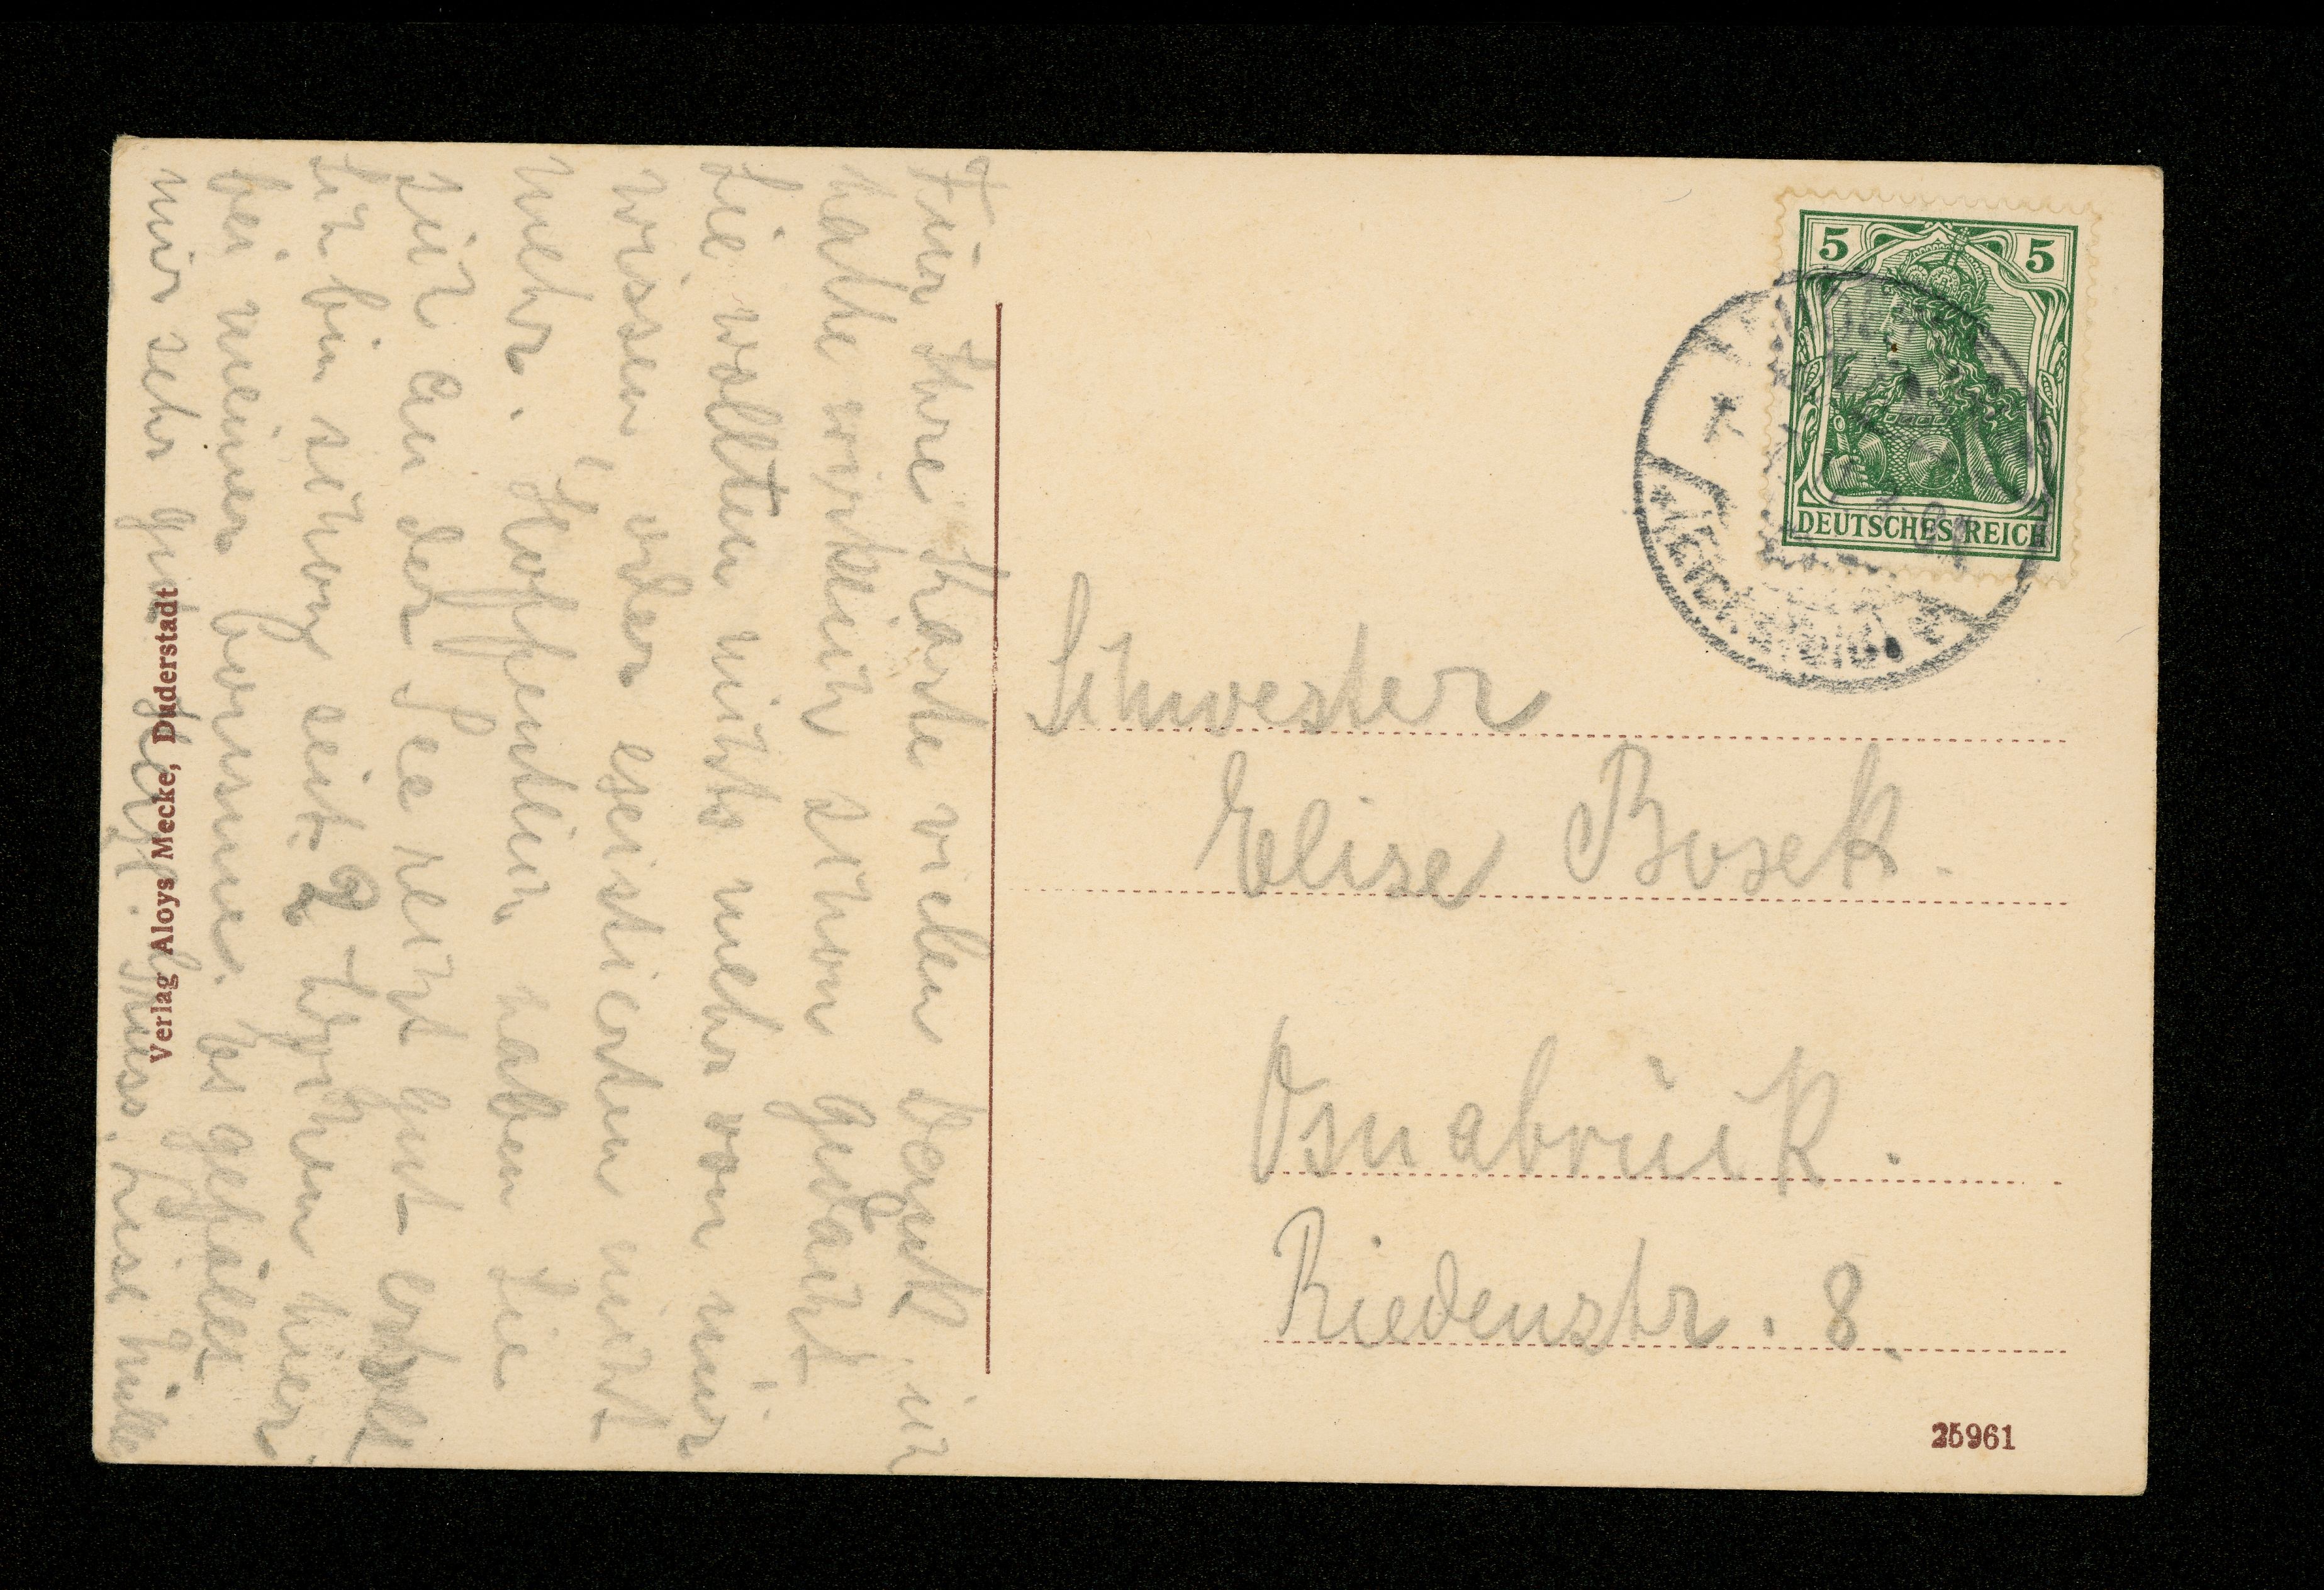 Für Ihre Karte vielen Dank, ich
hatte wirklich schon gedacht
Sie wollten nichts mehr von mir
wissen, oder existierten nicht
mehr. Hoffentlich haben Sie
sich an der See recht gut erholt
Ich bin schon seit 2 Wochen hier
bei meiner
Es gefällt
mir sehr gut
Verlag Aloys Mecke, Duderstadt
5 5
DEUTSCHES REICH
Schwester
Elise Bosek.
Osnabrück.
Riedenstr. 8.
25961